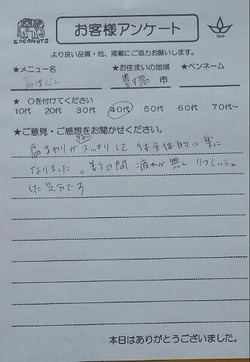 COCONUTS
お客様アンケート
より良い品質・他、掲載にご協力お願いします。
★メニュー名 ★お住まいの地域 ★ペンネーム
市
★ ○を付けてください
10代 20代 30代 40代 50代 60代 70代〜
★ご意見・ご感想をお聞かせください。
肩まわりがスッキリして 体全体的に楽に
なりました。 疲れが無く リフレッシュ
した気分です
本日はありがとうございました。